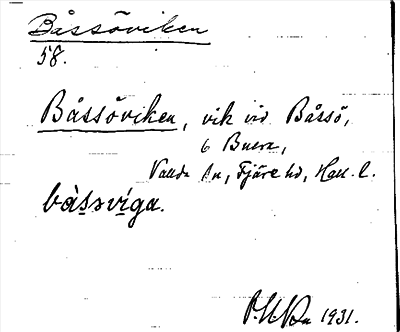 Båssöviken
58.
Båssöviken, vik vid Båssö,
6 Buera,
Vallda sn, Fjäre hd, Hall. l.
båsəviga.
1931.